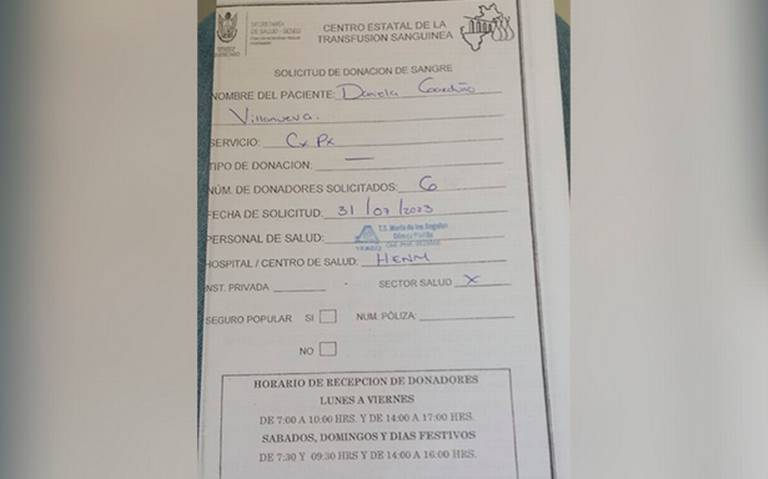 SECRETARÍA
DE SALUD - SENEQ
CENTRO ESTATAL DE LA
TRANSFUSION SANGUINEA
SOLICITUD DE DONACION DE SANGRE
NOMBRE DEL PACIENTE: Daniela
Villanueva.
SERVICIO: Cx Px
TIPO DE DONACION: —
NÚM. DE DONADORES SOLICITADOS: 6
FECHA DE SOLICITUD: 31/07/2023
PERSONAL DE SALUD: T.S. María de los Angeles
HOSPITAL / CENTRO DE SALUD: HENM
INST. PRIVADA - SECTOR SALUD X
SEGURO POPULAR SI NUM. PÓLIZA:
NO
HORARIO DE RECEPCION DE DONADORES
LUNES A VIERNES
DE 7:00 A 10:00 HRS. Y DE 14:00 A 17:00 HRS.
SABADOS, DOMINGOS Y DIAS FESTIVOS
DE 7:30 Y 09:30 HRS Y DE 14:00 A 16:00 HRS.